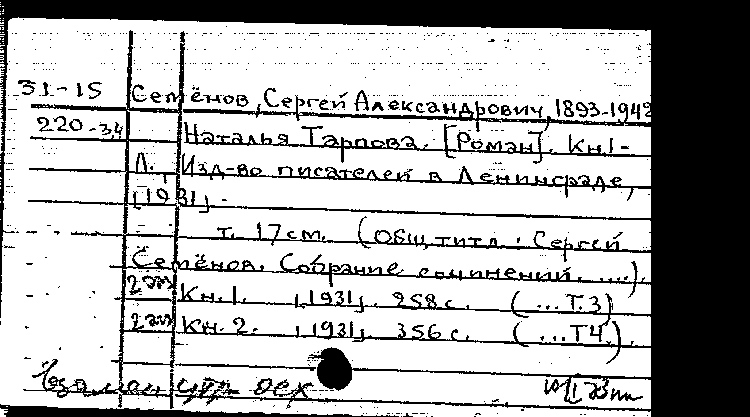 31-15 Семёнов, Сергей Александрович, 1893-1942
220-34 Наталья Тарпова. [Роман]. Кн.1-
Л., Изд-во писателей в Ленинграде,
[1931].-
т. 17 см. (Общ. титл.: Сергей
Семёнов. Собрание сочинений. ....).
2экз Кн.1. [1931]. 258 с. (...Т.3)
2экз Кн. 2. [1931]. 356 с. (...Т4.).
Взамен